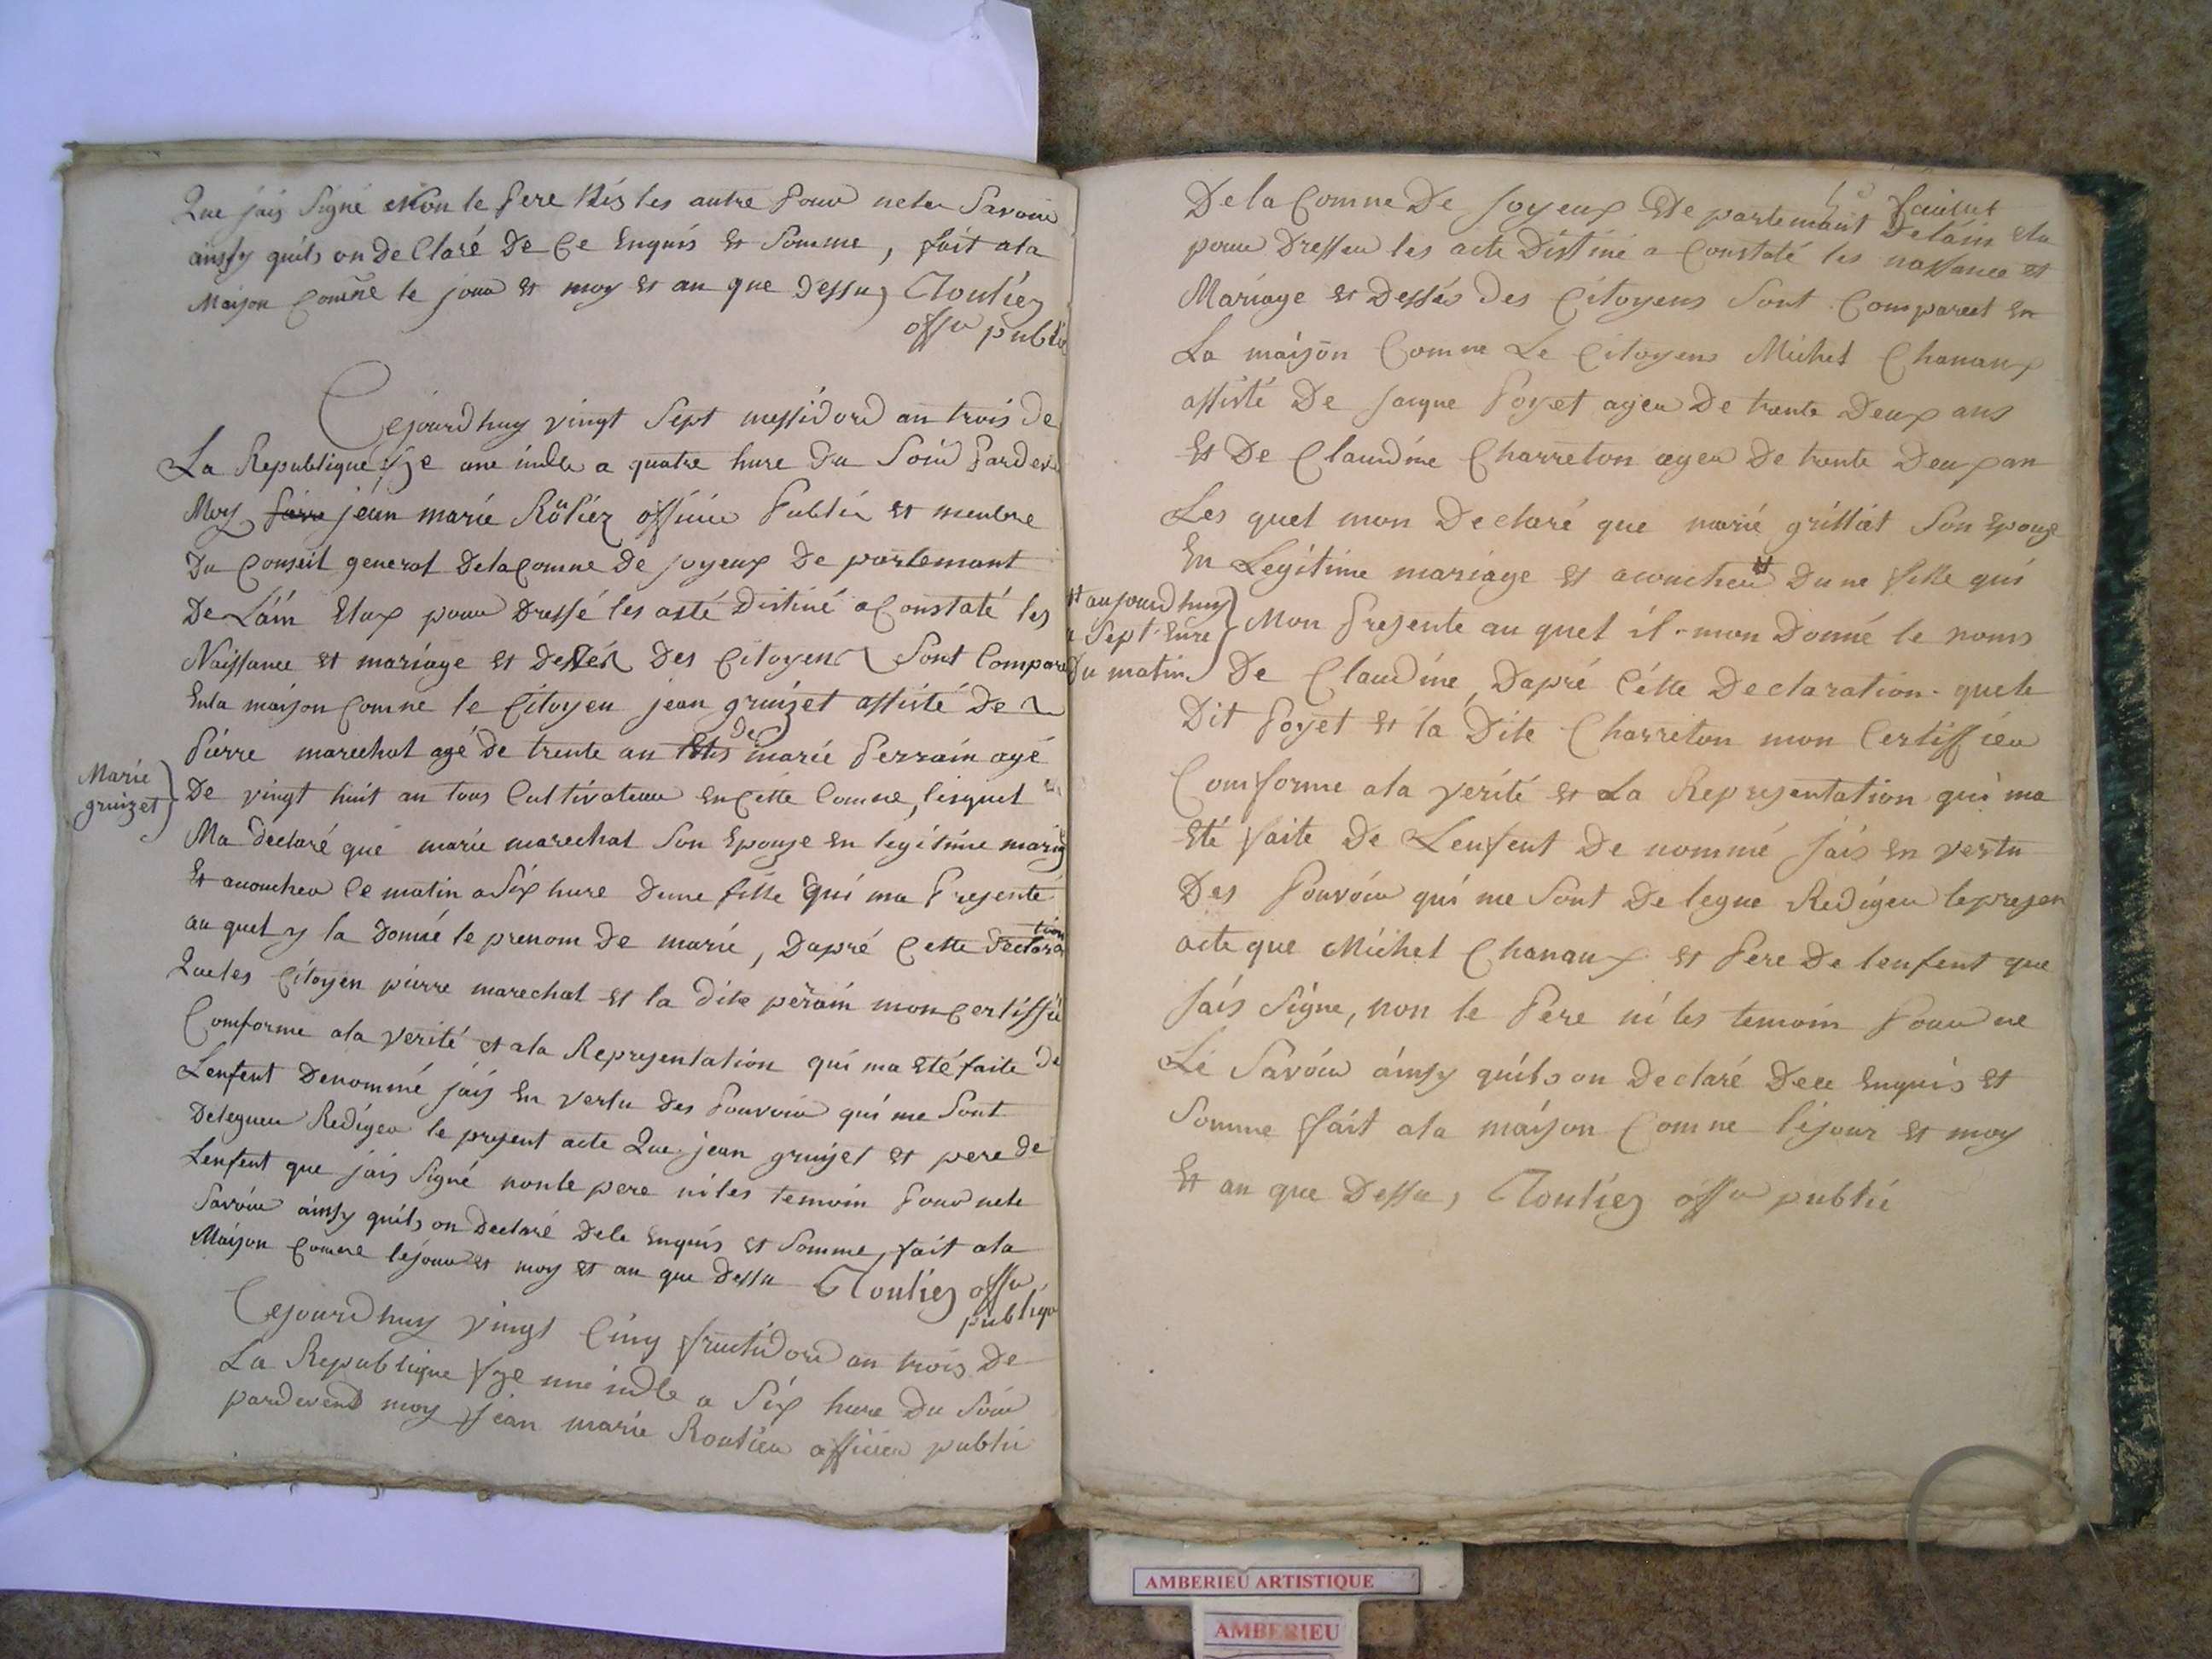 Que jais Signé et non le pere Nis les autre pour nelle Savoir
ainsy quils on de Claré De Ce Enquis Et Somme, fait ala
Maison Comne le jour Et moy Et an que Dessu, Rouliez
offr publi
Cejourdhuy vingt Sept messidord an trois de
La Republique fse une indle a quatre hure Du Soir Pardeve
Moy jean marie Rouliez officie Publi Et menbre
Du Conseil general DelaComne De joyeux De partemant
De Láin Elup pour Dressé les acté Distiné a Constaté les
Naissance Et mariage Et Dessés Des Citoyen Sont Compare
Enla maison Comne le Citoyen jean gruizet assisté De
Pierre marechal agé de trente an Et de marie Perrain agé
De vingt huit an tous Cultivateur En Cétte Comne, lesquel
Marie
gruizet
Ma declaré que marie marechal Son Epouze En legitime mariage
Et acoucheu Ce matin a Six hure Dune fille qui ma Presenté
au quel y la Donné le prenom De marie, Dapré Cette Declaration
Queles Citoyen pierre marechal Et la dite perrain mon Certiffié
Comforme ala verité et ala Representation qui ma Eté faite de
Lenfent Denommé jais En vertu Des Pouvoir qui me Sont
Delegueu Redigeu le present acte Que jean gruizet Et pere de
Lenfent que jais Signé nonle pere niles temoin Pour nele
Savoir ainsy quils on Declaré Dele Enquis Et Somme, fait ala
Maison Comne lejour Et moy Et an que Dessu Rouliez offr
publique
Cejourdhuy vingt Cinq fructidord an trois De
La Republique fse une indle a Six hure Du Soir
pardevend moy jean marie Roulieu officier publi
De la Comne De joyeux De partemant Delain Elu
pour Dresseu les acte Distiné a Constaté les nassance Et
Mariage Et Dessés Des Citoyens Sont Comparest En
La maison Comne Le Citoyens Michel Chanaux
assisté De jacque Poyet ageu De trente Deux ans
Et De Claudine Charreton ageu De trente Deux an
Les quel mon Declaré que marie grilliet Son Epouze
En Legitime mariage Et acoucheu Dune fille qui
Et aujourdhuy
a Sept Eure
Du matin
Mon Presente au quel il mon Donné le noms
De Claudine, Dapré Cétte Declaration que le
Dit Poyet Et la Dite Charreton mon Certiffieu
Comforme ala verité Et La Representation qui ma
Eté faite De Lenfent De nommé jais En vertu
Des Pouvoir qui me Sont De legue Redigeu le presen
acte que Michel Chanaux Et Pere De lenfent que
jais Signe, non le Pere ni les temoin Pour ne
Le Savoir ainsy quils on Declaré Dece Enquis Et
Somme fait ala maison Comne lejour Et moy
Et an que Dessu, Rouliez offr publi
AMBERIEU ARTISTIQUE
AMBERIEU